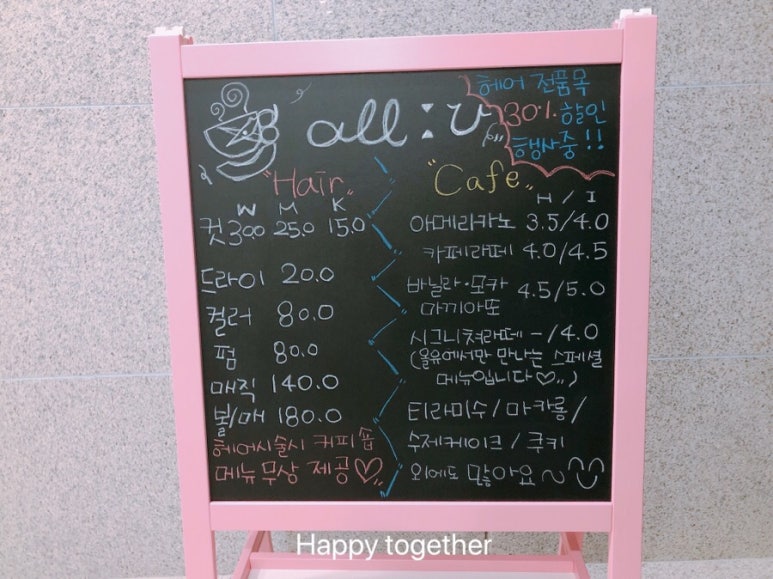 all:ㅠ
헤어 전품목
30% 할인
행사중!!
"Hair"
W M K
컷 30.0 25.0 15.0
드라이 20.0
컬러 80.0
펌 80.0
매직 140.0
볼/매 180.0
헤어시술시 커피숍
메뉴 무상 제공♡
"Cafe"
H / I
아메라카노 3.5/4.0
카페라떼 4.0/4.5
바닐라·모카 4.5/5.0
마끼아또
시그니쳐라떼 -/4.0
(올유에서만 만나는 스페셜
메뉴입니다♡..)
티라미수/마카롱/
수제케이크/쿠키
외에도 많아요~
Happy together